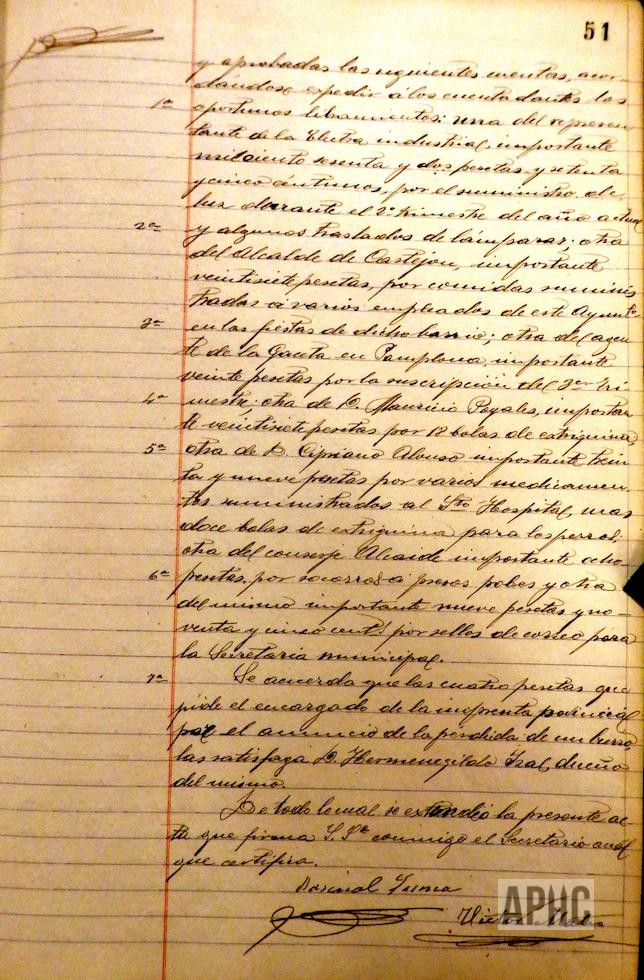 51
y aprobadas las siguientes cuentas, acor-
dándose expedir á los cuenta dantes los
1ª oportunos libramientos: una del represen-
tante de la Electra industrial, importante
mil ciento sesenta y dos pesetas y setenta
y cinco céntimos, por el suministro de
luz durante el 2º trimestre del año actual
2ª y algunos traslados de lámparas; otra
del Alcalde de Castejon, importante
veintisiete pesetas, por comidas suminis
tradas á varios empleados de este Ayunt.º
3ª en las fiestas de dicho barrio; otra del agen
te de la Gaceta en Pamplona, importante
veinte pesetas por la suscripción del 3er tri
4ª mestre; otra de D. Mauricio importan
te veintisiete pesetas por 18 bolas de estriguina,
5ª otra de D. Cipriano Alonso importante trein
ta y nueve pesetas por varios medicamen-
tos suministrados al Sto Hospital, mas
doce bolas de extriguina para los perros;
otra del conserje Alcaide importante ocho
6ª pesetas, por socorros a presos pobres y otra
del mismo importante nueve pesetas y no-
venta y cinco cents por sellos de correo para
la Secretaria municipal.
7ª Se acuerda que las cuatro pesetas que
pide el encargado de la imprenta provincial
por el anuncio de la pérdida de un burro
las satisfaga D. Hermenegildo dueño
del mismo.
De todo lo cual se extendió la presente ac-
ta que firma S. Sª conmigo el Secretario
que certifica.
APHC
Victor